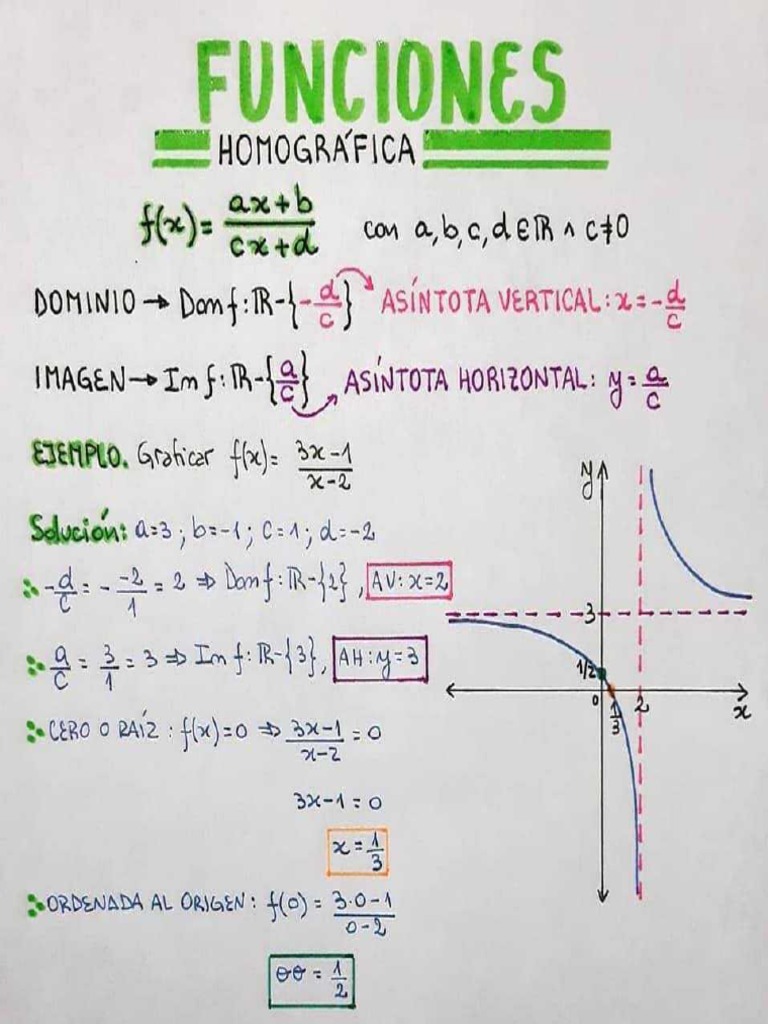 FUNCIONES
HOMOGRÁFICA
f(x) = (ax+b)/(cx+d) con a, b, c, d ∈ ℝ ∧ c ≠ 0
DOMINIO → Dom f: ℝ-{-d/c} ASÍNTOTA VERTICAL: x = -d/c
IMAGEN → Im f: ℝ-{a/c} ASÍNTOTA HORIZONTAL: y = a/c
EJEMPLO. Graficar f(x) = (3x-1)/(x-2)
Solución: a=3; b=-1; c=1; d=-2
-d/c = - -2/1 = 2 ⇒ Dom f: ℝ-{2}, AV: x=2
a/c = 3/1 = 3 ⇒ Im f: ℝ-{3}, AH: y=3
CERO O RAÍZ: f(x)=0 ⇒ (3x-1)/(x-2) = 0
3x-1 = 0
x = 1/3
ORDENADA AL ORIGEN: f(0) = (3·0-1)/(0-2)
θθ = 1/2
y
3
1/2
0
1/3
2
x